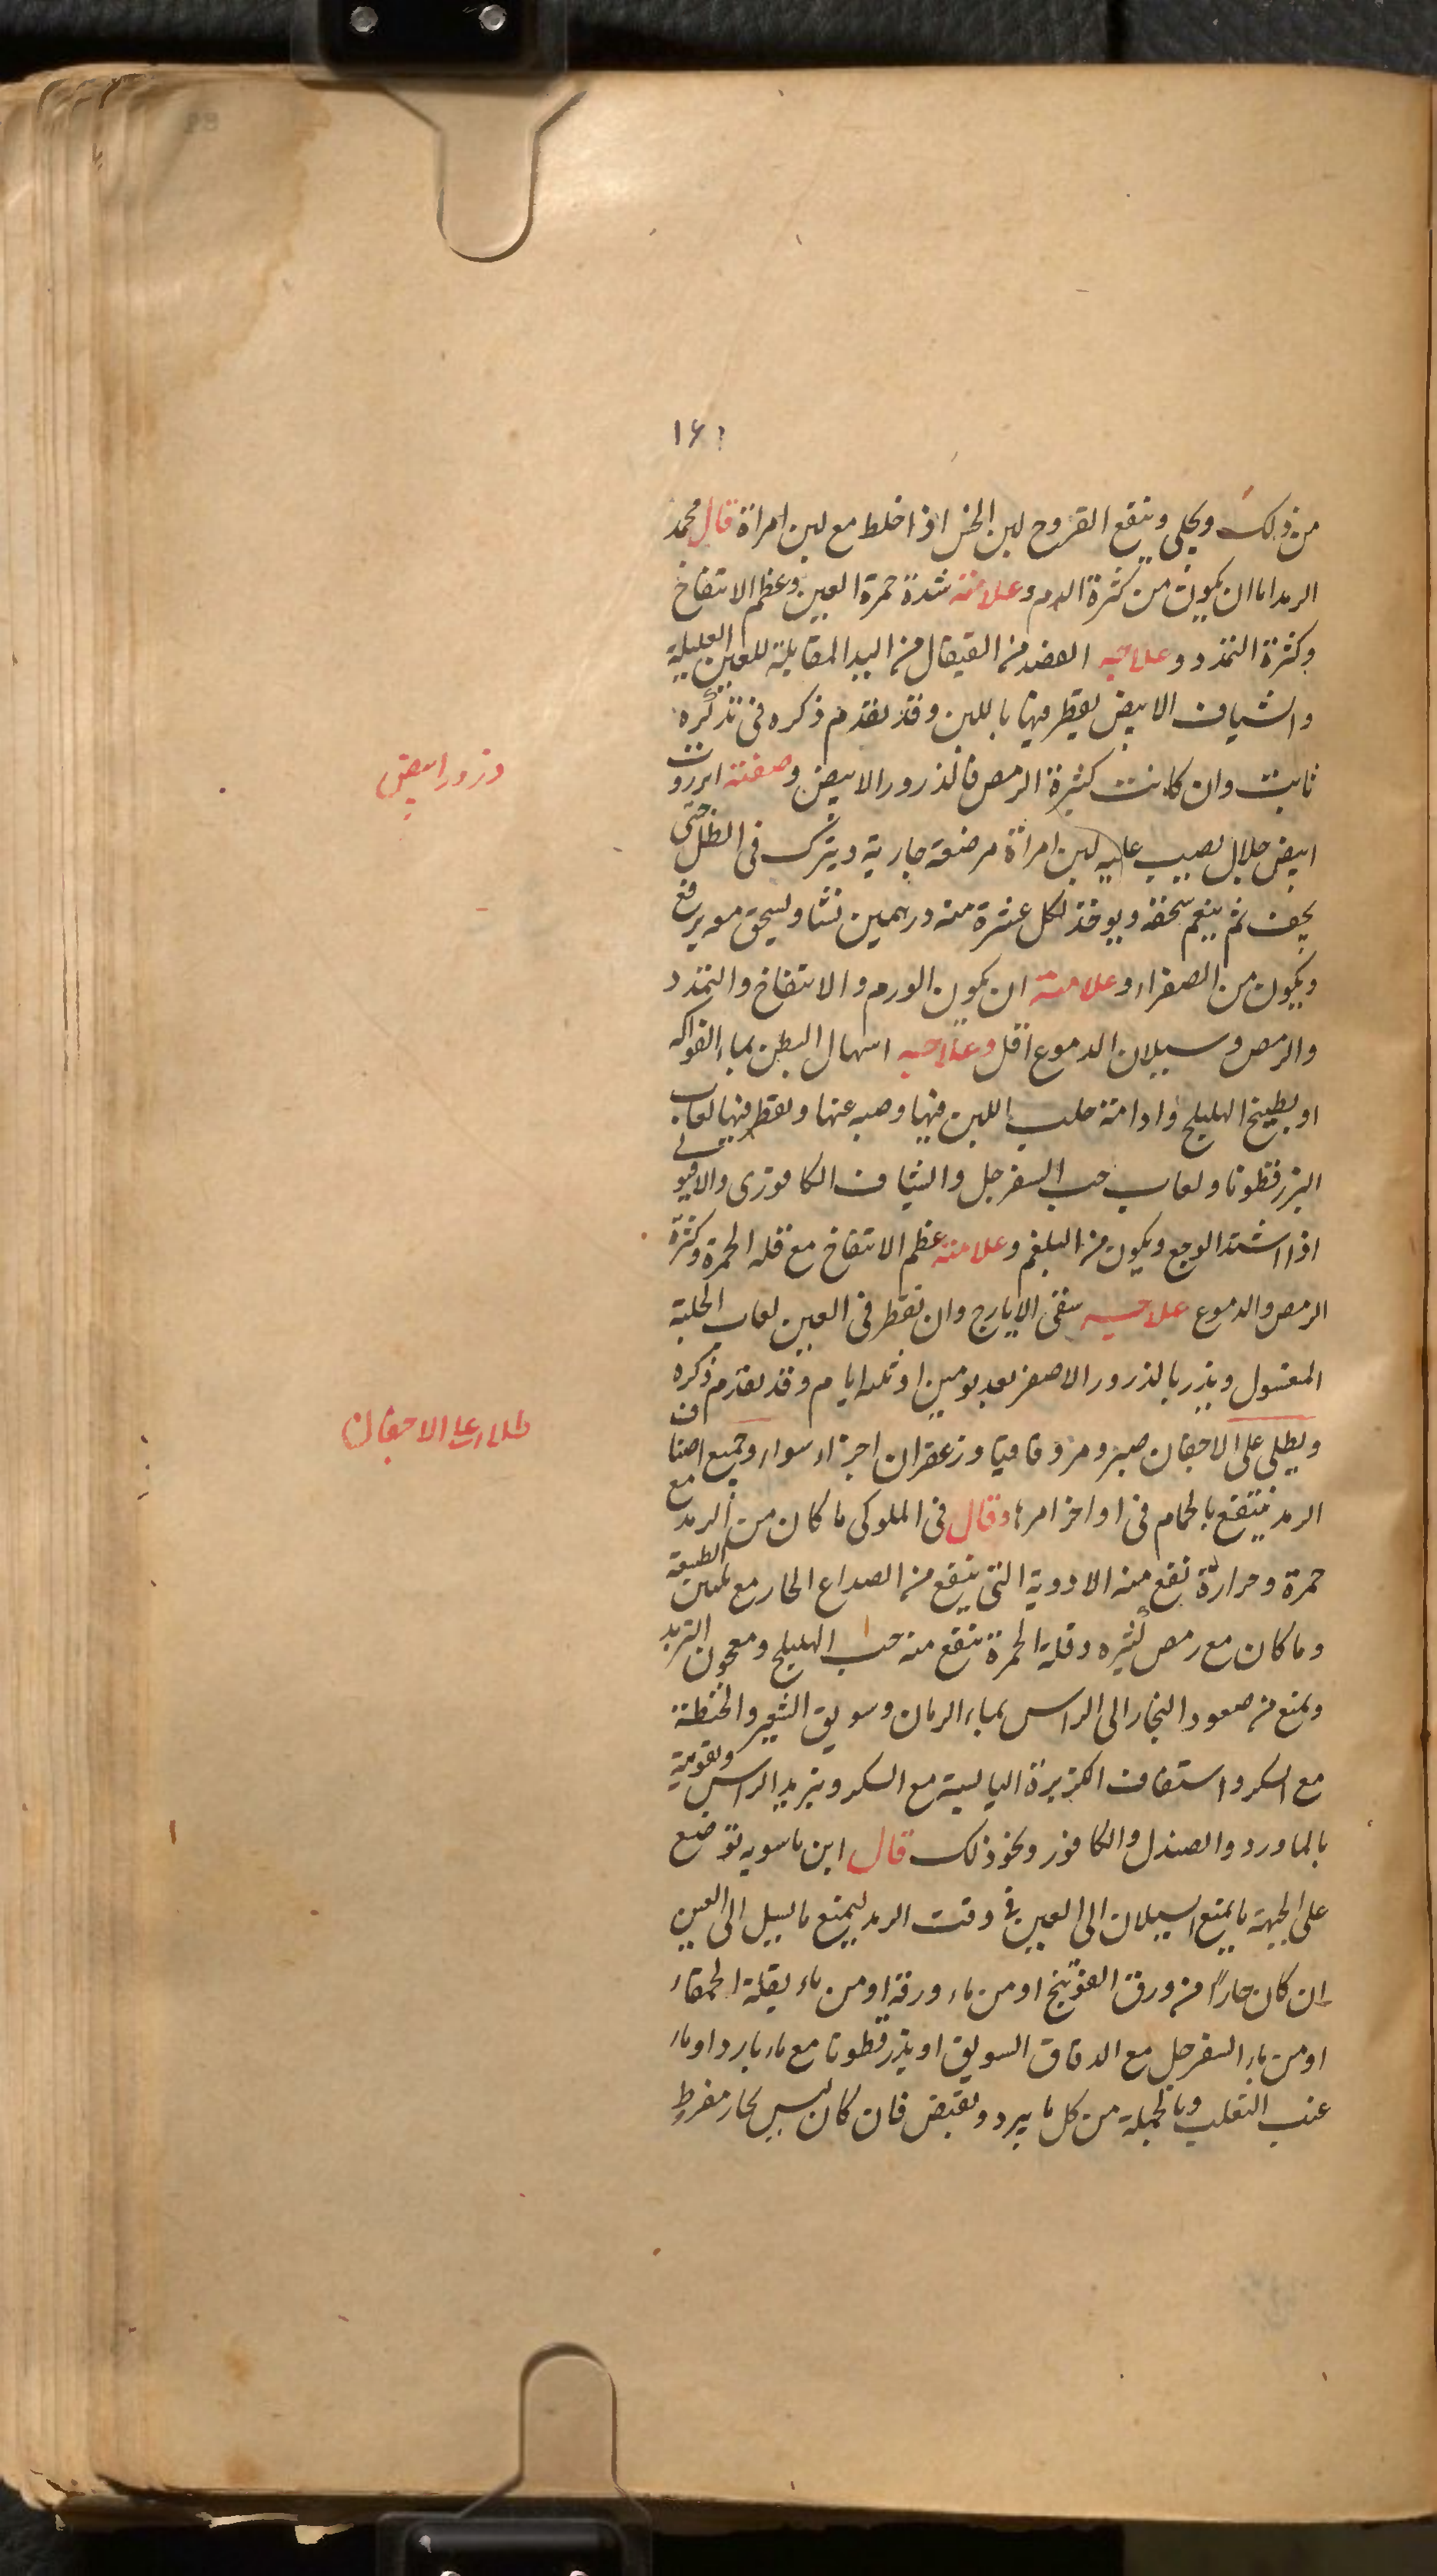 ١٤١
من ذلك ويجلى وينقع القروح لبن الخس اذا خلط مع لبن امراة قال محمد
الرمد اما ان يكون من كثرة الدم وعلامته شدة حمرة العين وعظم الانتفاخ
وكثرة التمدد وعلاجه الفصد من القيفال من اليد المقابلة للعين العليلة
والشياف الابيض يقطر فيها باللبن وقد تقدم ذكره فى تذكره
ثابت وان كانت كثيرة الرمص فالذرور الابيض وصفته انزروت
ذرور ابيض
ابيض جلال يصب عليه لبن امراة مرضعة جارية ويترك فى الظل حتى
يجف ثم ينعم سحقه ويوخذ لكل عشرة منه درهمين نشا ويسحق معه يرفع
ويكون من الصفراء وعلامته ان يكون الورم والانتفاخ والتمدد
والرمص وسيلان الدموع اقل وعلاجه اسهال البطن بماء الفواكه
او بطبيخ الهليلج وادامة حلب اللبن فيها وصبه عنها ويقطر فيها لعاب
البزرقطونا ولعاب حب السفرجل والشياف الكافورى والافيونى
اذا اشتد الوجع ويكون من البلغم وعلامته عظم الانتفاخ مع قله الحمرة وكثرة
الرمص والدموع علاجه سقى الايارج وان تقطر فى العين لعاب الحلبة
المغسول ويذر بالذرور الاصفر بعد يومين او ثلثه ايام وقد تقدم ذكره
ويطلى على الاجفان صبر ومر وقاقيا وزعفران اجزاء سواء وجميع اصناف
طلاء على الاجفان
الرمد ينتفع بالحمام فى اواخر امرها وقال فى الملوكى ما كان من الرمد مع
حمرة وحرارة نفع منه الادوية التى ينفع من الصداع الحار مع تليين الطبيعة
وما كان مع رمص كثيره وقلة الحمرة ينفع منه حب الهليلج ومعجون التربد
ويمنع من صعود البخار الى الراس بماء الرمان وسويق الشعير والحنطة
مع السكر واستفاف الكزبرة اليابسة مع السكر وتبريد الراس وتقويته
بالماورد والصندل والكافور ونحو ذلك قال ابن ماسويه توضع
على الجبهة ما يمنع السيلان الى العين فى وقت الرمد ليمنع ما يسيل الى العين
ان كان حاراً من ورق العوسج او من ماء ورقه او من ماء بقلة الحمقاء
او من ماء السفرجل مع الدقاق السويق او بذرقطونا مع ماء بارد او ماء
عنب الثعلب وبالجملة من كل ما يبرد ويقبض فان كان ليس بحار مفرط